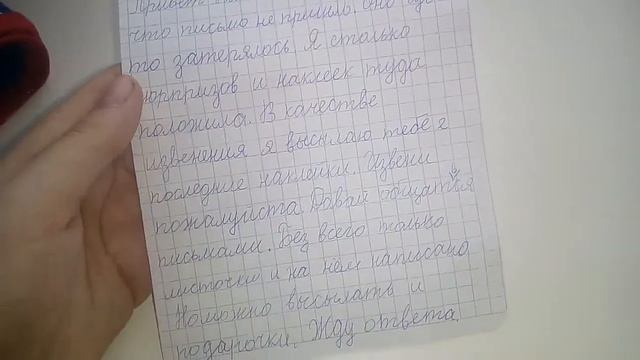 Привет
что письмо не пришло. Оно где
то затерялось. Я столько
сюрпризов и наклеек туда
положила. В качестве
извенения я высылаю тебе 2
последние наклейки. Извени
пожалуйста. Давай общатся
письмами. Без всего только
листочки и на нём написано
Но можно высылать и
подарочки. Жду ответа.